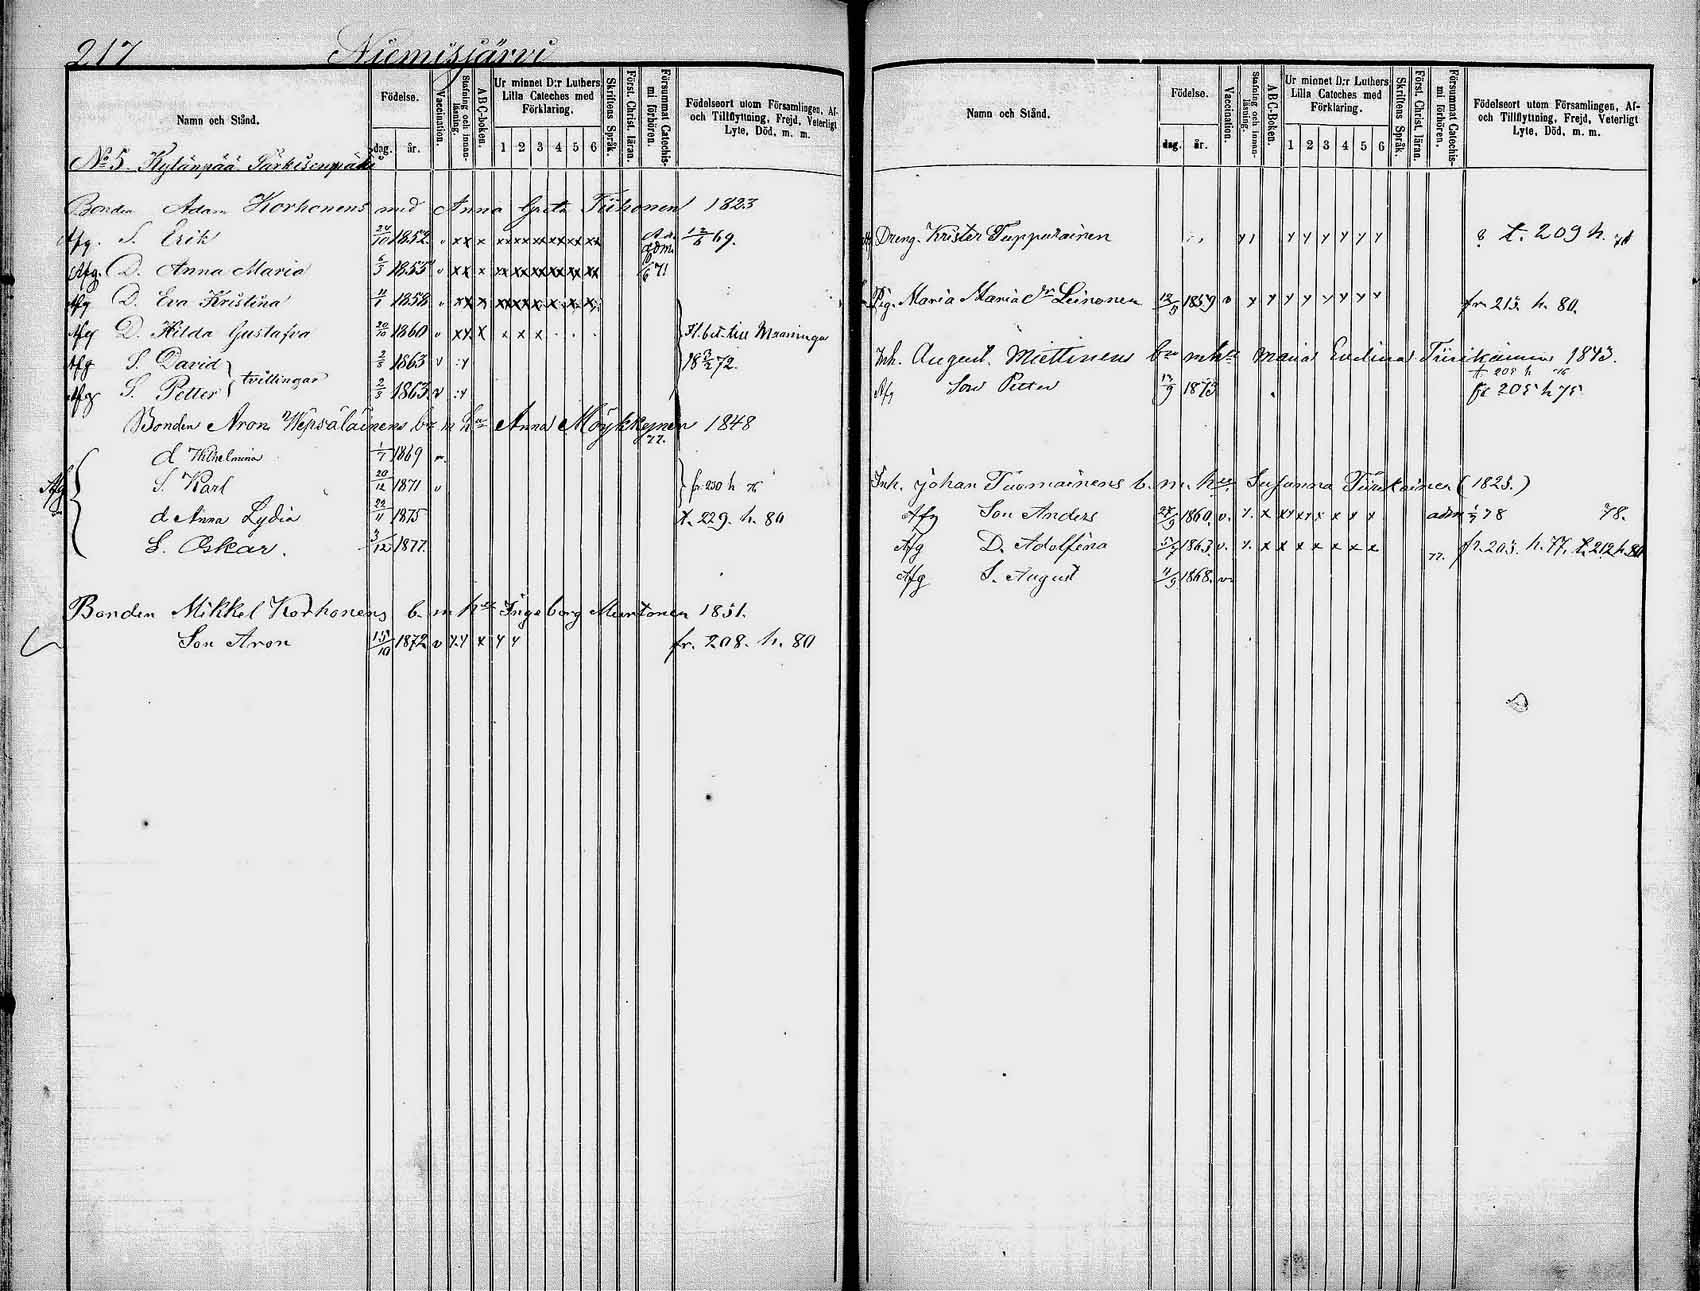 217 Niemisjärvi
Namn och Stånd.
Födelse.
dag. år.
Vaccination.
Stafning och innanläsning.
ABC-boken.
Ur minnet D:r Luthers Lilla Cateches med Förklaring.
1 2 3 4 5 6
Skriftens Språk.
Först. Christ. läran.
Försummat Catechismi förhören.
Födelseort utom Församlingen, Af- och Tillflyttning, Frejd, Veterligt Lyte, Död, m. m.
No 5. Kylänpää Särkisenmäki
Bonden Adam Korhonens med Anna Greta Tiihonen 1823
Afg. S. Erik 24/10 1852 v xx x xx xx xx xx xx xx 12/6 69.
Afg. D. Anna Maria 6/3 1855 v xx x xx xx xx xx xx xx 6 71
Afg D. Eva Kristina 1858 v xx x
Afg D. Hilda Gustafva 20/10 1860 v xx x x x x . . . Fl. bet. till Maaninga
Afg S. David 2/3 1863 v 18 72.
tvillingar
Afg S. Petter 2/3 1863 v
Bonden Aron Wepsäläinens b. m h. Anna Möykkynen 1848
77.
d Wilhelmina 1/7 1869 v.
Afg S. Karl 20/12 1871 v fr. 230 h 76
d Anna Lydia 22/11 1875 t. 229. h. 80
S. Oskar. 3/12 1877.
Bonden Mikkel Korhonens b. m h. Ingeborg Miettonen 1851.
Son Aron 15/10 1872 v x.x x x x fr. 208. h. 80
Namn och Stånd.
Födelse.
dag. år.
Vaccination.
Stafning och innanläsning.
ABC-Boken.
Ur minnet D:r Luthers Lilla Cateches med Förklaring.
1 2 3 4 5 6
Skriftens Språk.
Först. Christ. läran.
Försummat Catechismi förhören.
Födelseort utom Församlingen, Af- och Tillflyttning, Frejd, Veterligt Lyte, Död, m. m.
Dreng. Krister Tuppurainen x x x x x x t. 209 h.
Pig. Maria Maria dr Leinonen 12/9 1859 v x x x x x x x x fr. 215. h. 80.
Inh. August Miettinens Maria Evelina Tiirikainen 1843.
t 205 h 76
Afg Son Petter 17/9 1873 fr 205 h 75.
Inh. Johan Tuomainens b. m. h. Susanna Tiirikainen (1825.)
Afg Son Anders 1860. v. x. x xx xx x x x x adm 78 78.
Afg D. Adolfina 1863. v. x. x x x x x x x 77. fr. 203. h. 77. t. 212 h. 80
Afg S. August 11/9 1868. v.